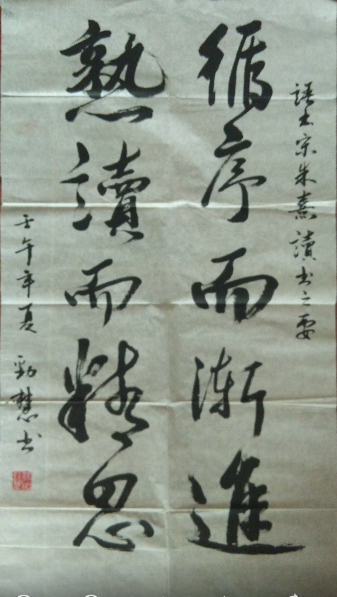 語出宋朱熹讀书之要
循序而漸進
熟讀而精思
壬午年夏
勁慧书